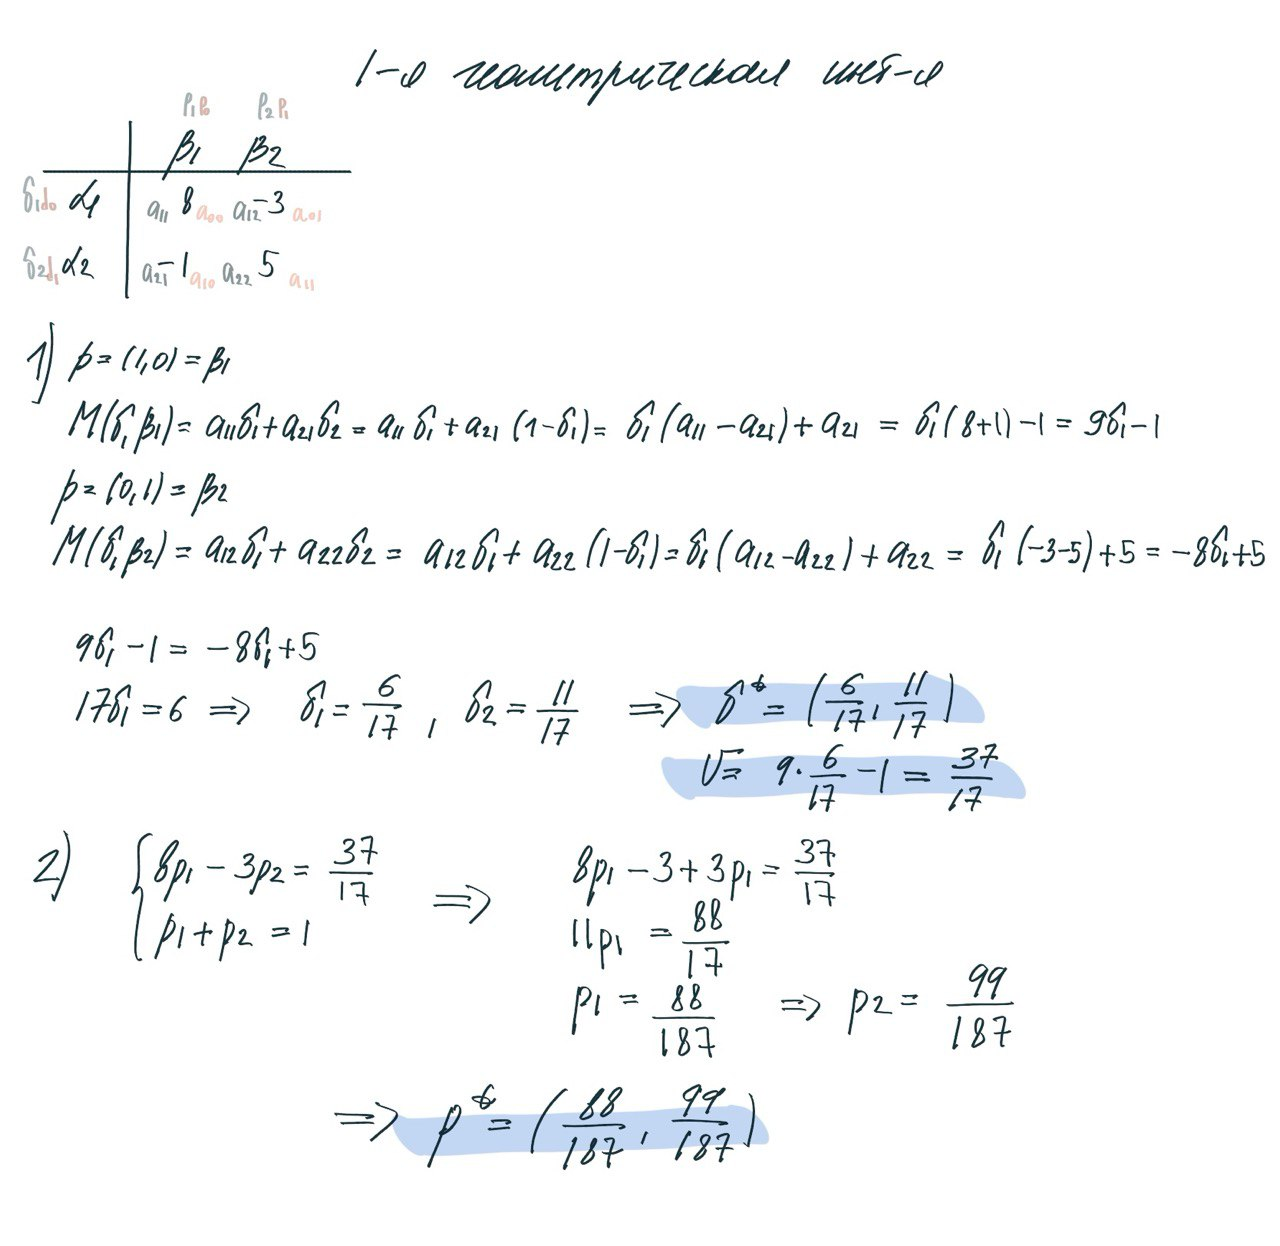 1-я геометрическая инт-я
p₁ p₀ p₂ p₁
β₁ β₂
δ₁ d₀ α₁ a₁₁ 8 a₀₀ a₁₂ -3 a₀₁
δ₂ d₁ α₂ a₂₁ -1 a₁₀ a₂₂ 5 a₁₁
1) p = (1,0) = β₁
M(δ, β₁) = a₁₁δ₁ + a₂₁δ₂ = a₁₁δ₁ + a₂₁(1-δ₁) = δ₁(a₁₁ - a₂₁) + a₂₁ = δ₁(8+1) - 1 = 9δ₁ - 1
p = (0,1) = β₂
M(δ, β₂) = a₁₂δ₁ + a₂₂δ₂ = a₁₂δ₁ + a₂₂(1-δ₁) = δ₁(a₁₂ - a₂₂) + a₂₂ = δ₁(-3-5) + 5 = -8δ₁ + 5
9δ₁ - 1 = -8δ₁ + 5
17δ₁ = 6 ⇒ δ₁ = 6/17, δ₂ = 11/17 ⇒ δ* = (6/17, 11/17)
V = 9·6/17 - 1 = 37/17
2) { 8p₁ - 3p₂ = 37/17 ⇒ 8p₁ - 3 + 3p₁ = 37/17
p₁ + p₂ = 1 11p₁ = 88/17
p₁ = 88/187 ⇒ p₂ = 99/187
⇒ p* = (88/187, 99/187)